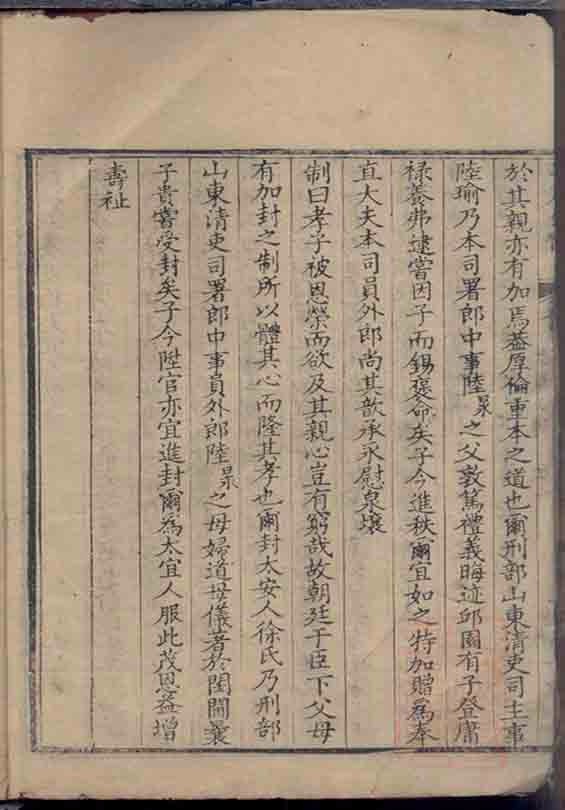 於其親亦有加焉葢厚倫重本之道也爾刑部山東清吏司主事
陸瑜乃本司署郎中事陸杲之父敦篤禮義晦迹邱園有子登庸
禄養弗逮嘗因子而錫褒命矣子今進秩爾宜如之特加贈為奉
直大夫本司員外郎尚其歆承永慰泉壤
制曰孝子被恩榮而欲及其親心豈有窮哉故朝廷于臣下父母
有加封之制所以體其心而隆其孝也爾封太安人徐氏乃刑部
山東清吏司署郎中事員外郎陸杲之母婦道母儀著於閨閫曩
子貴嘗受封矣子今陞官亦宜進封爾為太宜人服此茂恩益增
壽祉